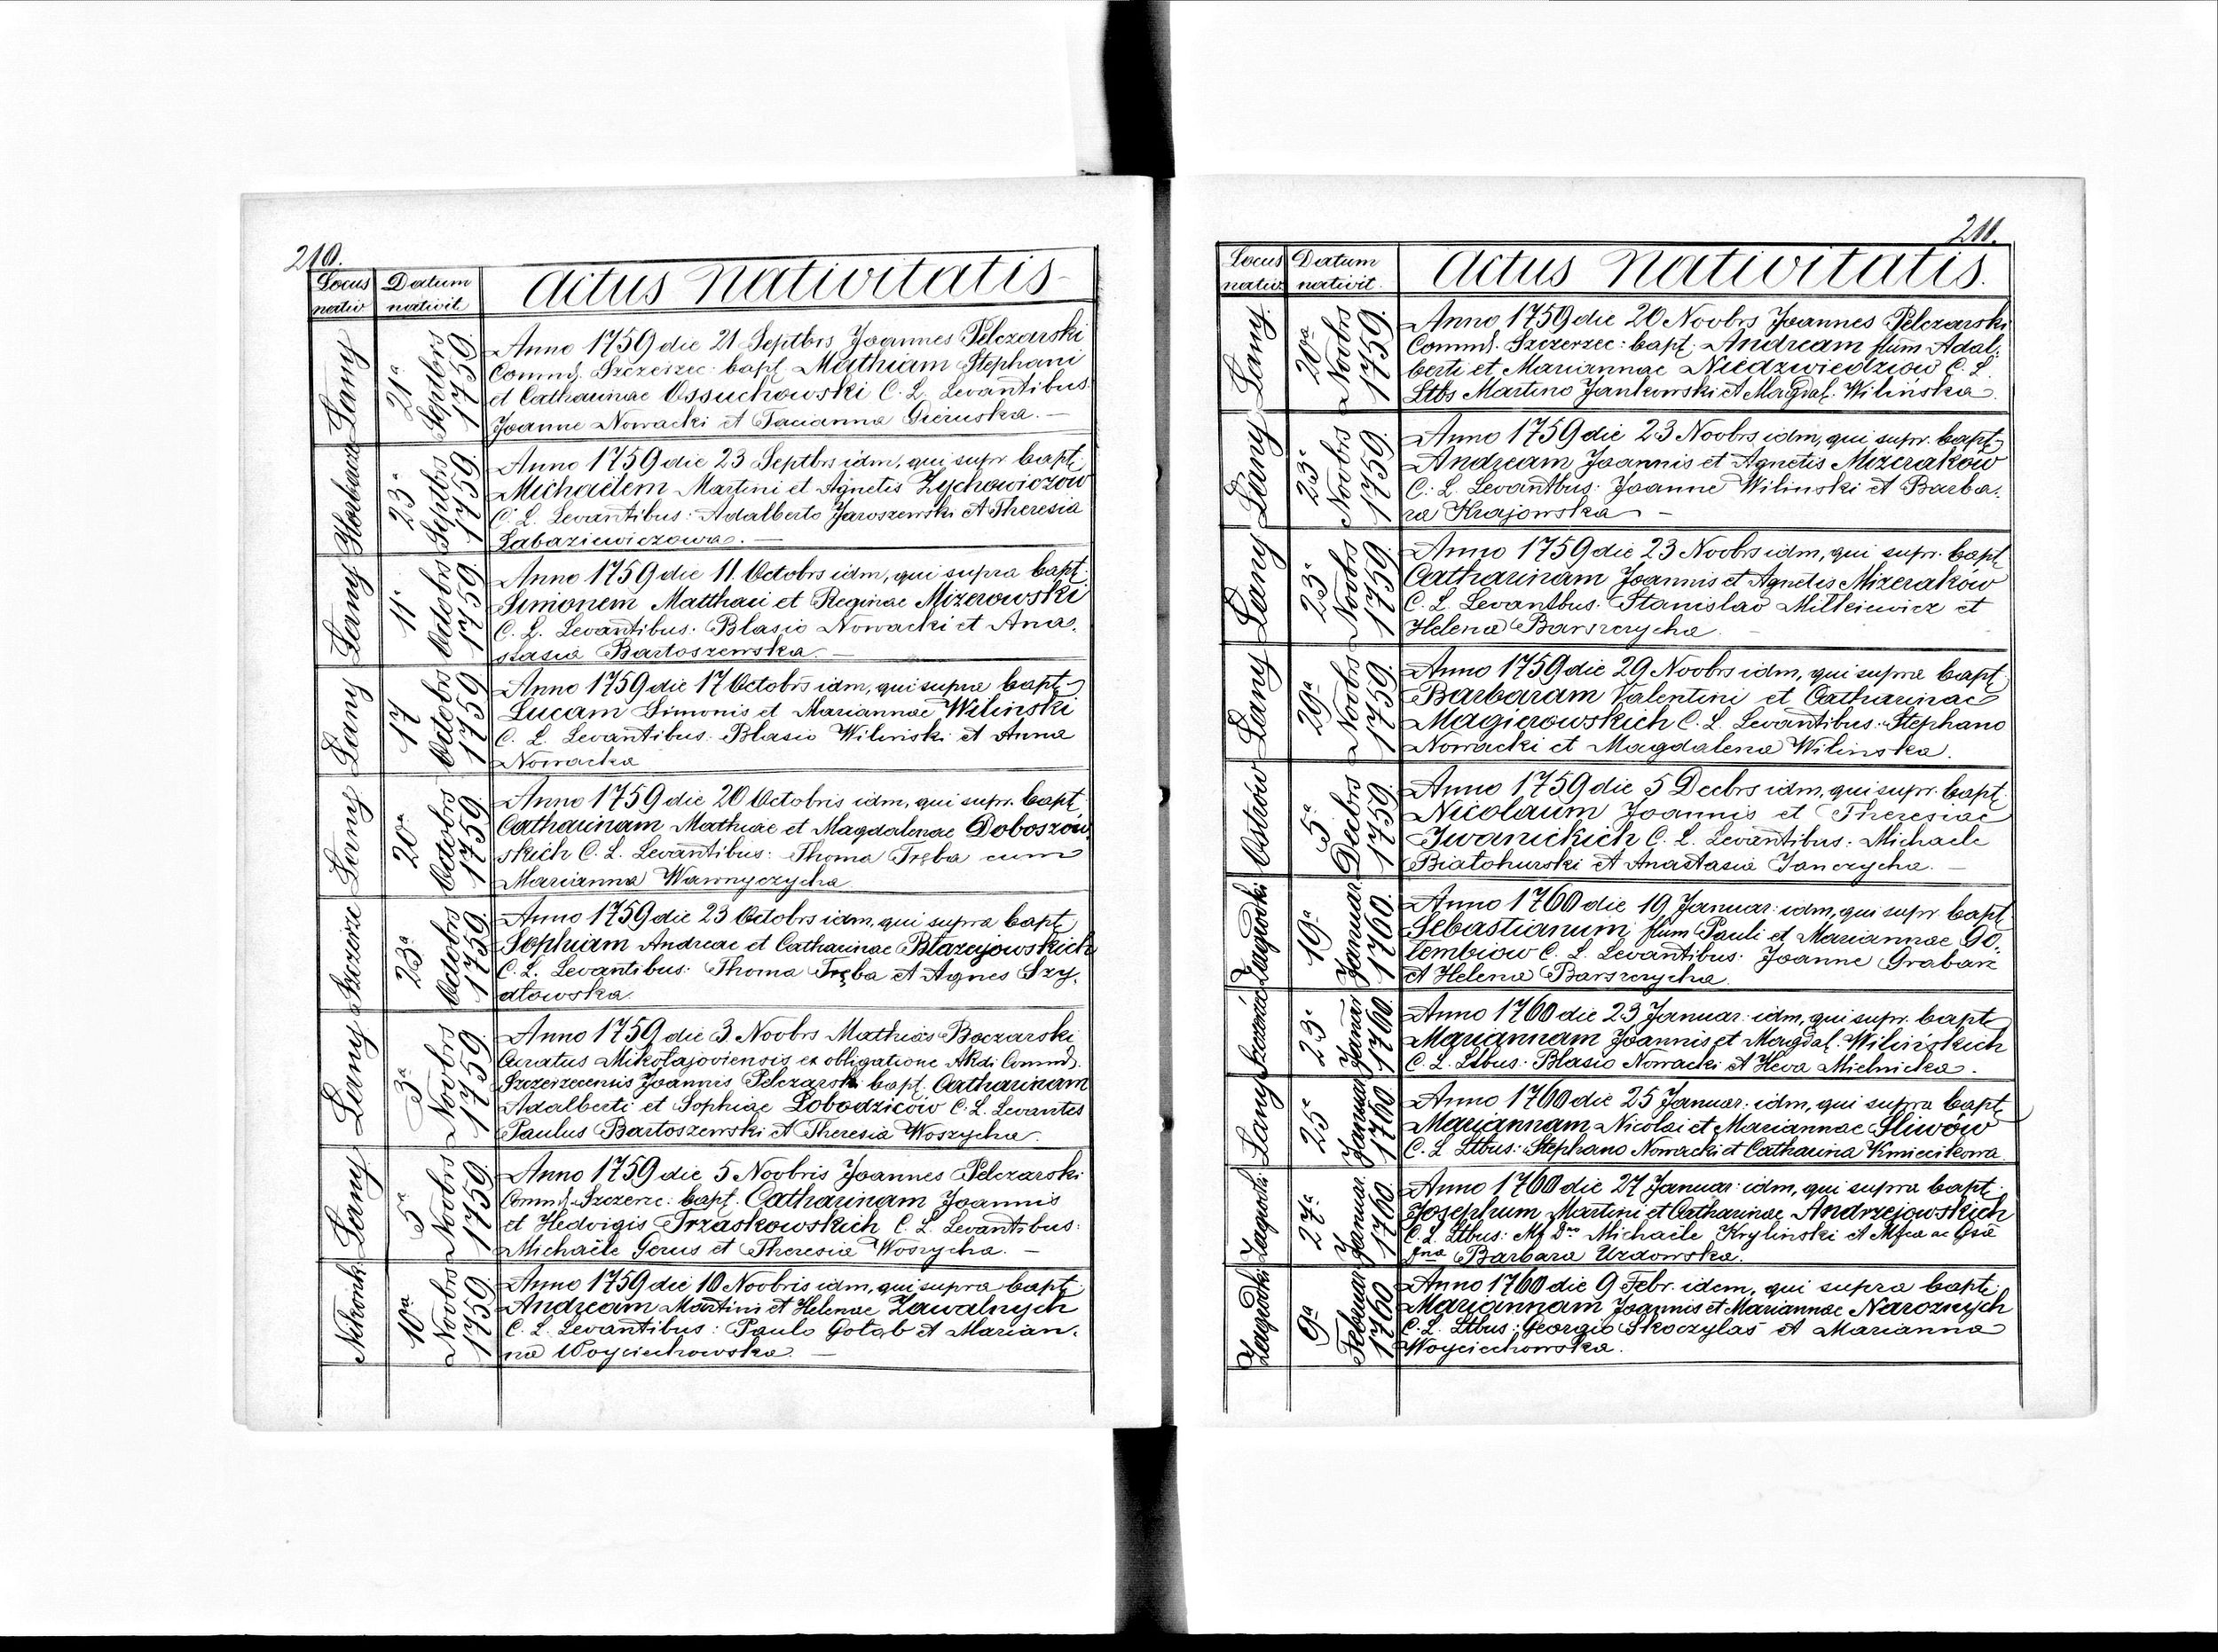 210.
Locus nativ.
Datum nativit.
Actus Nativitatis
Lany
21a Septbrs 1759.
Anno 1759 die 21 Septbrs Joannes Pelczarski
Commd. Szczerzec: bapt. Mathiam Stephani
et Catharinae Ossuchowski C. L. Levantibus
Joanne Nowacki et Tacianna Gieruska. —
Horbacz
23a Septbrs 1759.
Anno 1759 die 23 Septbrs idm, qui supr bapt:
Michaëlem Martini et Agnetis Zychowiczow
C. L. Levantibus: Adalberto Jaroszewski et Theresia
Labaziewiczowa. —
Lany
11a Octobrs 1759.
Anno 1759 die 11. Octobrs idm, qui supra bapt:
Simonem Matthaei et Reginae Mizerowski
C. L. Levantibus: Blasio Nowacki et Ana-
stasia Bartoszewska. —
Lany
17 Octobrs 1759
Anno 1759 die 17 Octobrs idm, qui supra bapt:
Lucam Simonis et Mariannae Wilinski
C. L. Levantibus: Blasio Wiliński et Anna
Nowacka
Lany
20a Octobrs 1759.
Anno 1759 die 20 Octobris idm, qui supr. bapt:
Catharinam Mathiae et Magdalenae Doboszów
skich C. L. Levantibus: Thoma Tręba cum
Marianna Wawnyczycha
Szczerze
23a Octobrs 1759.
Anno 1759 die 23 Octobrs idm, qui supra bapt:
Sophiam Andreae et Catharinae Błazejowskich
C. L. Levantibus: Thoma Tręba et Agnes Szy-
dłowska.
Lany
3a Noobrs 1759.
Anno 1759 die 3. Noobrs Mathias Boczarski
Curatus Mikołajoviensis ex obligatione ARdi Commd.
Szczerzecensis Joannis Pelczarski bapt. Catharinam
Adalberti et Sophiae Lobodziców C. L. Levantes
Paulus Bartoszewski et Theresia Woszycha.
Lany
5a Noobrs 1759.
Anno 1759 die 5 Noobris Joannes Pelczarski
Commd. Szczerzc: bapt. Catharinam Joannis
et Hedvigis Trzaskowskich C. L. Levantbus:
Michaële Gerus et Theresia Woszycha. —
Nikonki
10a Noobrs 1759.
Anno 1759 die 10 Noobris idm, qui supra bapt:
Andream Martini et Helenae Zawalnych
C. L. Levantibus: Paulo Gołąb et Marian-
na Woyciechowska. —
211.
Locus nativ.
Datum nativit.
Actus Nativitatis.
Lany.
20a Noobrs 1759.
Anno 1759 die 20 Noobrs Joannes Pelczarski
Commd. Szczerzec: bapt: Andream flum Adal-
berti et Mariannae Niedzwiedziow C. L.
Ltbs Martino Jankowski et Magdal. Wilińska.
Lany
23a Noobrs 1759.
Anno 1759 die 23 Noobrs idm, qui supr. bapt:
Andream Joannis et Agnetis Mizerakow
C. L. Levantbus: Joanne Wilinski et Barba-
ra Krajowska —
Lany
23a Noobrs 1759.
Anno 1759 die 23 Noobrs idm, qui supr. bapt
Catharinam Joannis et Agnetis Mizerakow
C. L. Levantbus: Stanislao Mitkiewicz et
Helena Barszczycha. —
Lany
29a Noobrs 1759.
Anno 1759 die 29 Noobrs idm, qui supra bapt:
Barbaram Valentini et Catharinae
Magierowskich C. L. Levantibus: Stephano
Nowacki et Magdalena Wilinska.
Ostrów
5a Decbrs 1759.
Anno 1759 die 5 Decbrs idm, qui supr. bapt:
Nicolaum Joannis et Theresiae
Iwanickich C. L. Levantibus: Michaele
Białohurski et Anastasia Janczycha. —
Zagrodki
19a Januar. 1760.
Anno 1760 die 19 Januar: idm, qui supr. bapt:
Sebastianum flum Pauli et Mariannae Go-
lembiow C. L. Levantibus: Joanne Grabarz
et Helena Barszczycha.
Szczerze
23a Januar 1760.
Anno 1760 die 23 Januar: idm, qui supr. bapt:
Mariannam Joannis et Magdal. Wilinskich
C. L. Ltbus: Blasio Nowacki et Heva Mielnicka.
Lany
25a Januar 1760
Anno 1760 die 25 Januar: idm, qui supra bapt
Mariannam Nicolai et Mariannae Sliwów
C. L. Ltbus: Stephano Nowacki et Catharina Kmiecikowa
Zagrodki
27a Januar. 1760.
Anno 1760 die 27 Januar: idm, qui supra bapt:
Josephum Martini et Catharinae Andrzejowskich
C. L. Ltbus: Mf Dno Michaële Krylinski et Mfca ac Gsa
Dna Barbara Urdowska.
Zagrodki
9a Februar 1760
Anno 1760 die 9 Febr. idem, qui supra bapt:
Mariannam Joannis et Mariannae Naroznych
C. L. Ltbus: Georgio Skoczylas et Marianna
Woyciechowska.